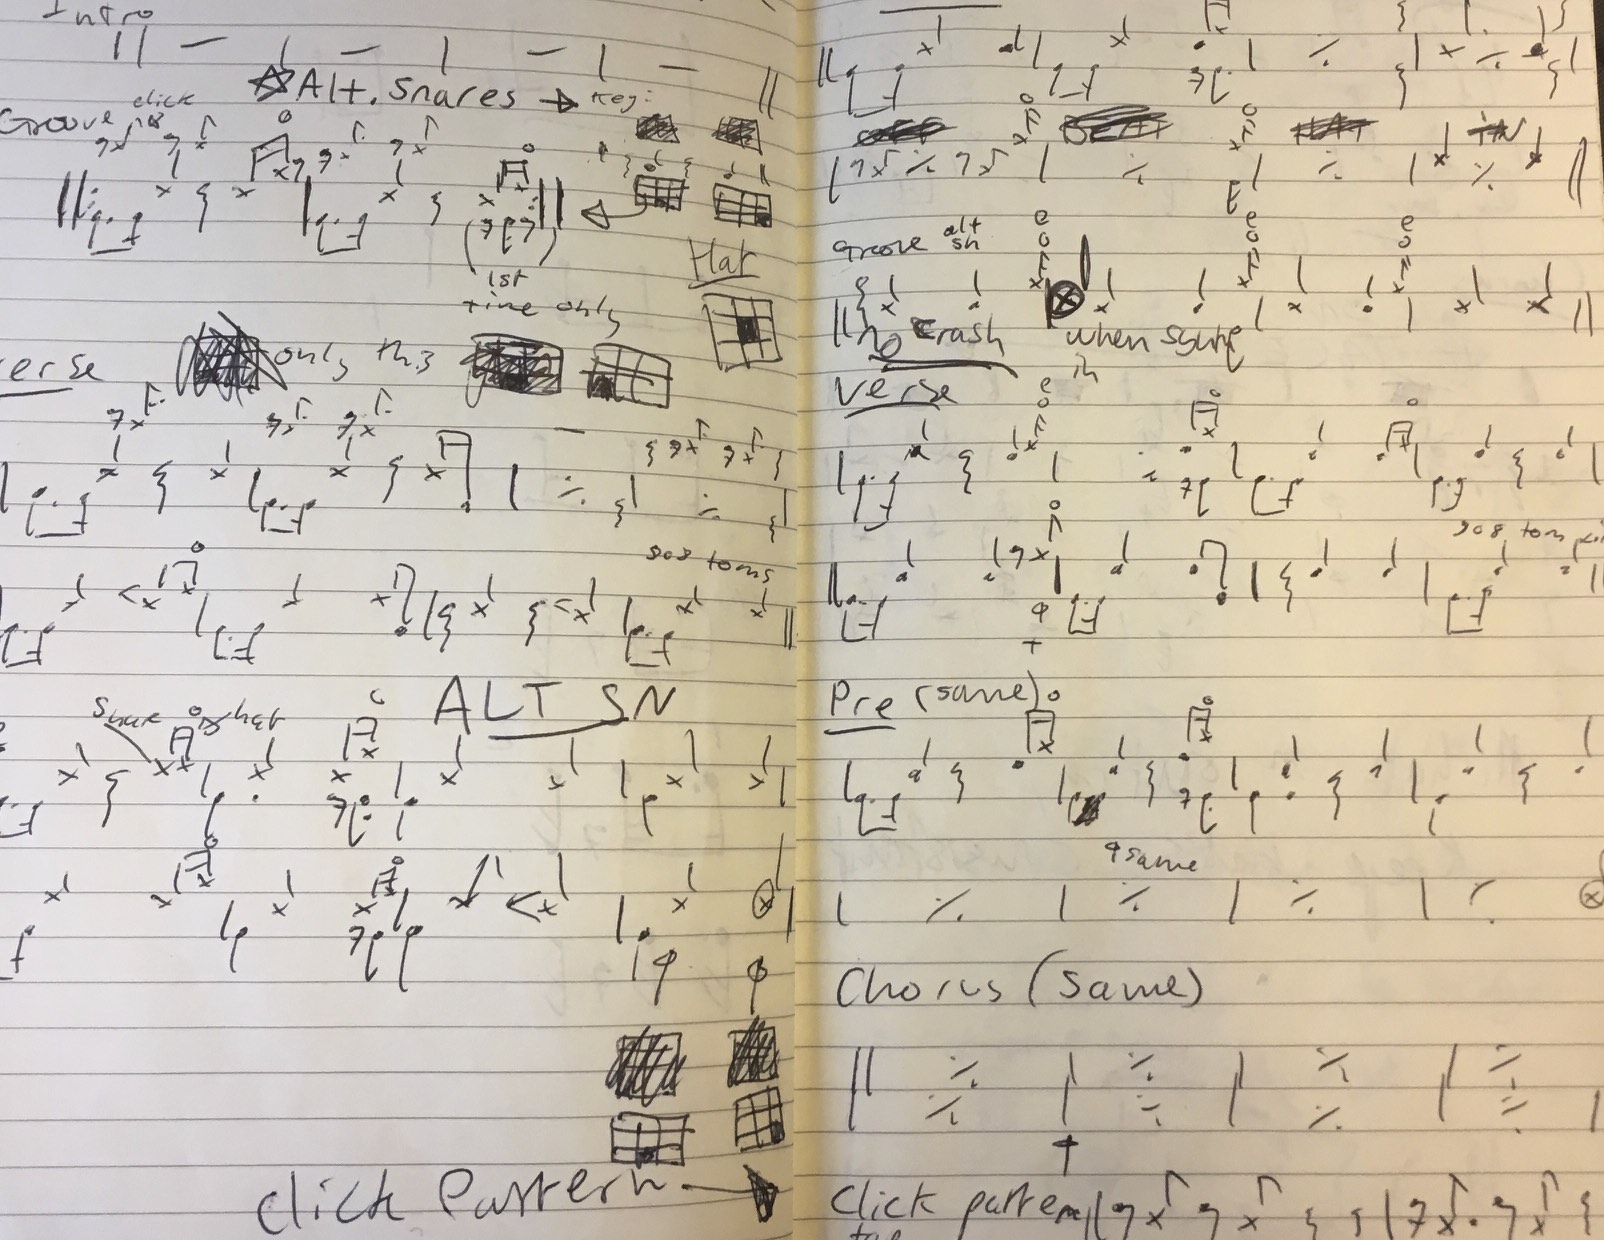 Intro
Alt. Snares → Key:
click
Groove
Hat
1st
time only
erse only this
808 toms
ALT SN
Snare hat
Click Pattern
Groove alt
sn
No Crash when synth
in
Verse
808 tom
Pre (same)
same
Chorus (Same)
Click pattern